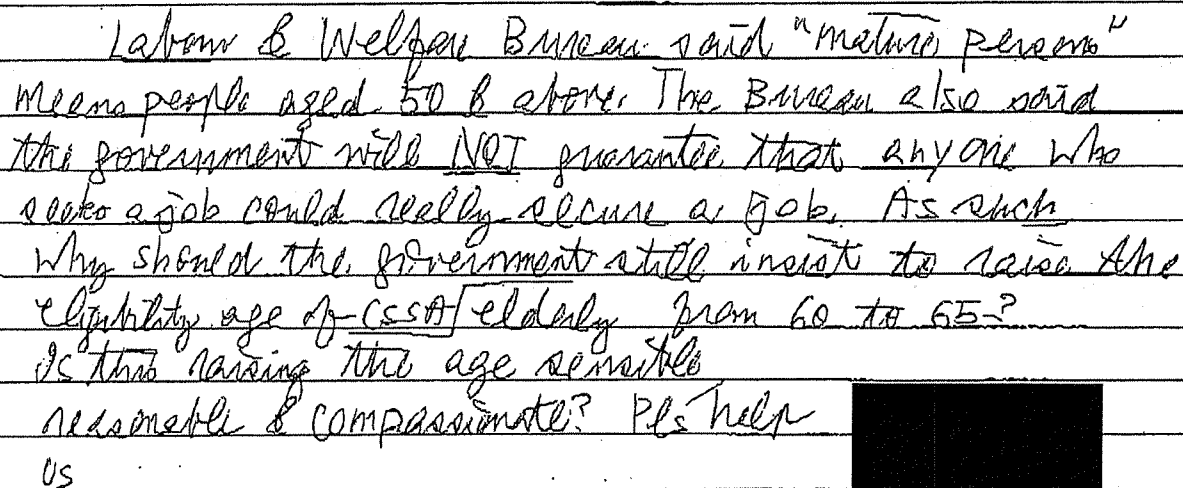 Labour & Welfare Bureau said "mature persons"
means people aged 50 & above. The Bureau also said
the government will NOT guarantee that anyone who
seeks a job could really secure a job. As such
why should the government still insist to raise the
eligibility age of CSSA/elderly from 60 to 65?
Is this raising the age sensible
reasonable & compassionate? Pls help
us